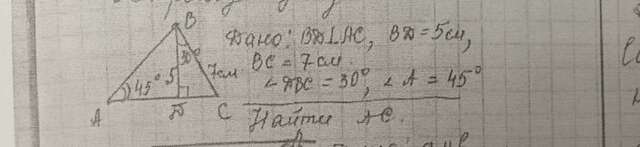 B
30°
Дано: BD⊥AC, BD=5см,
5
7см
BC=7см.
45°
∠DBC=30°, ∠A=45°
A
D
C
Найти AC.